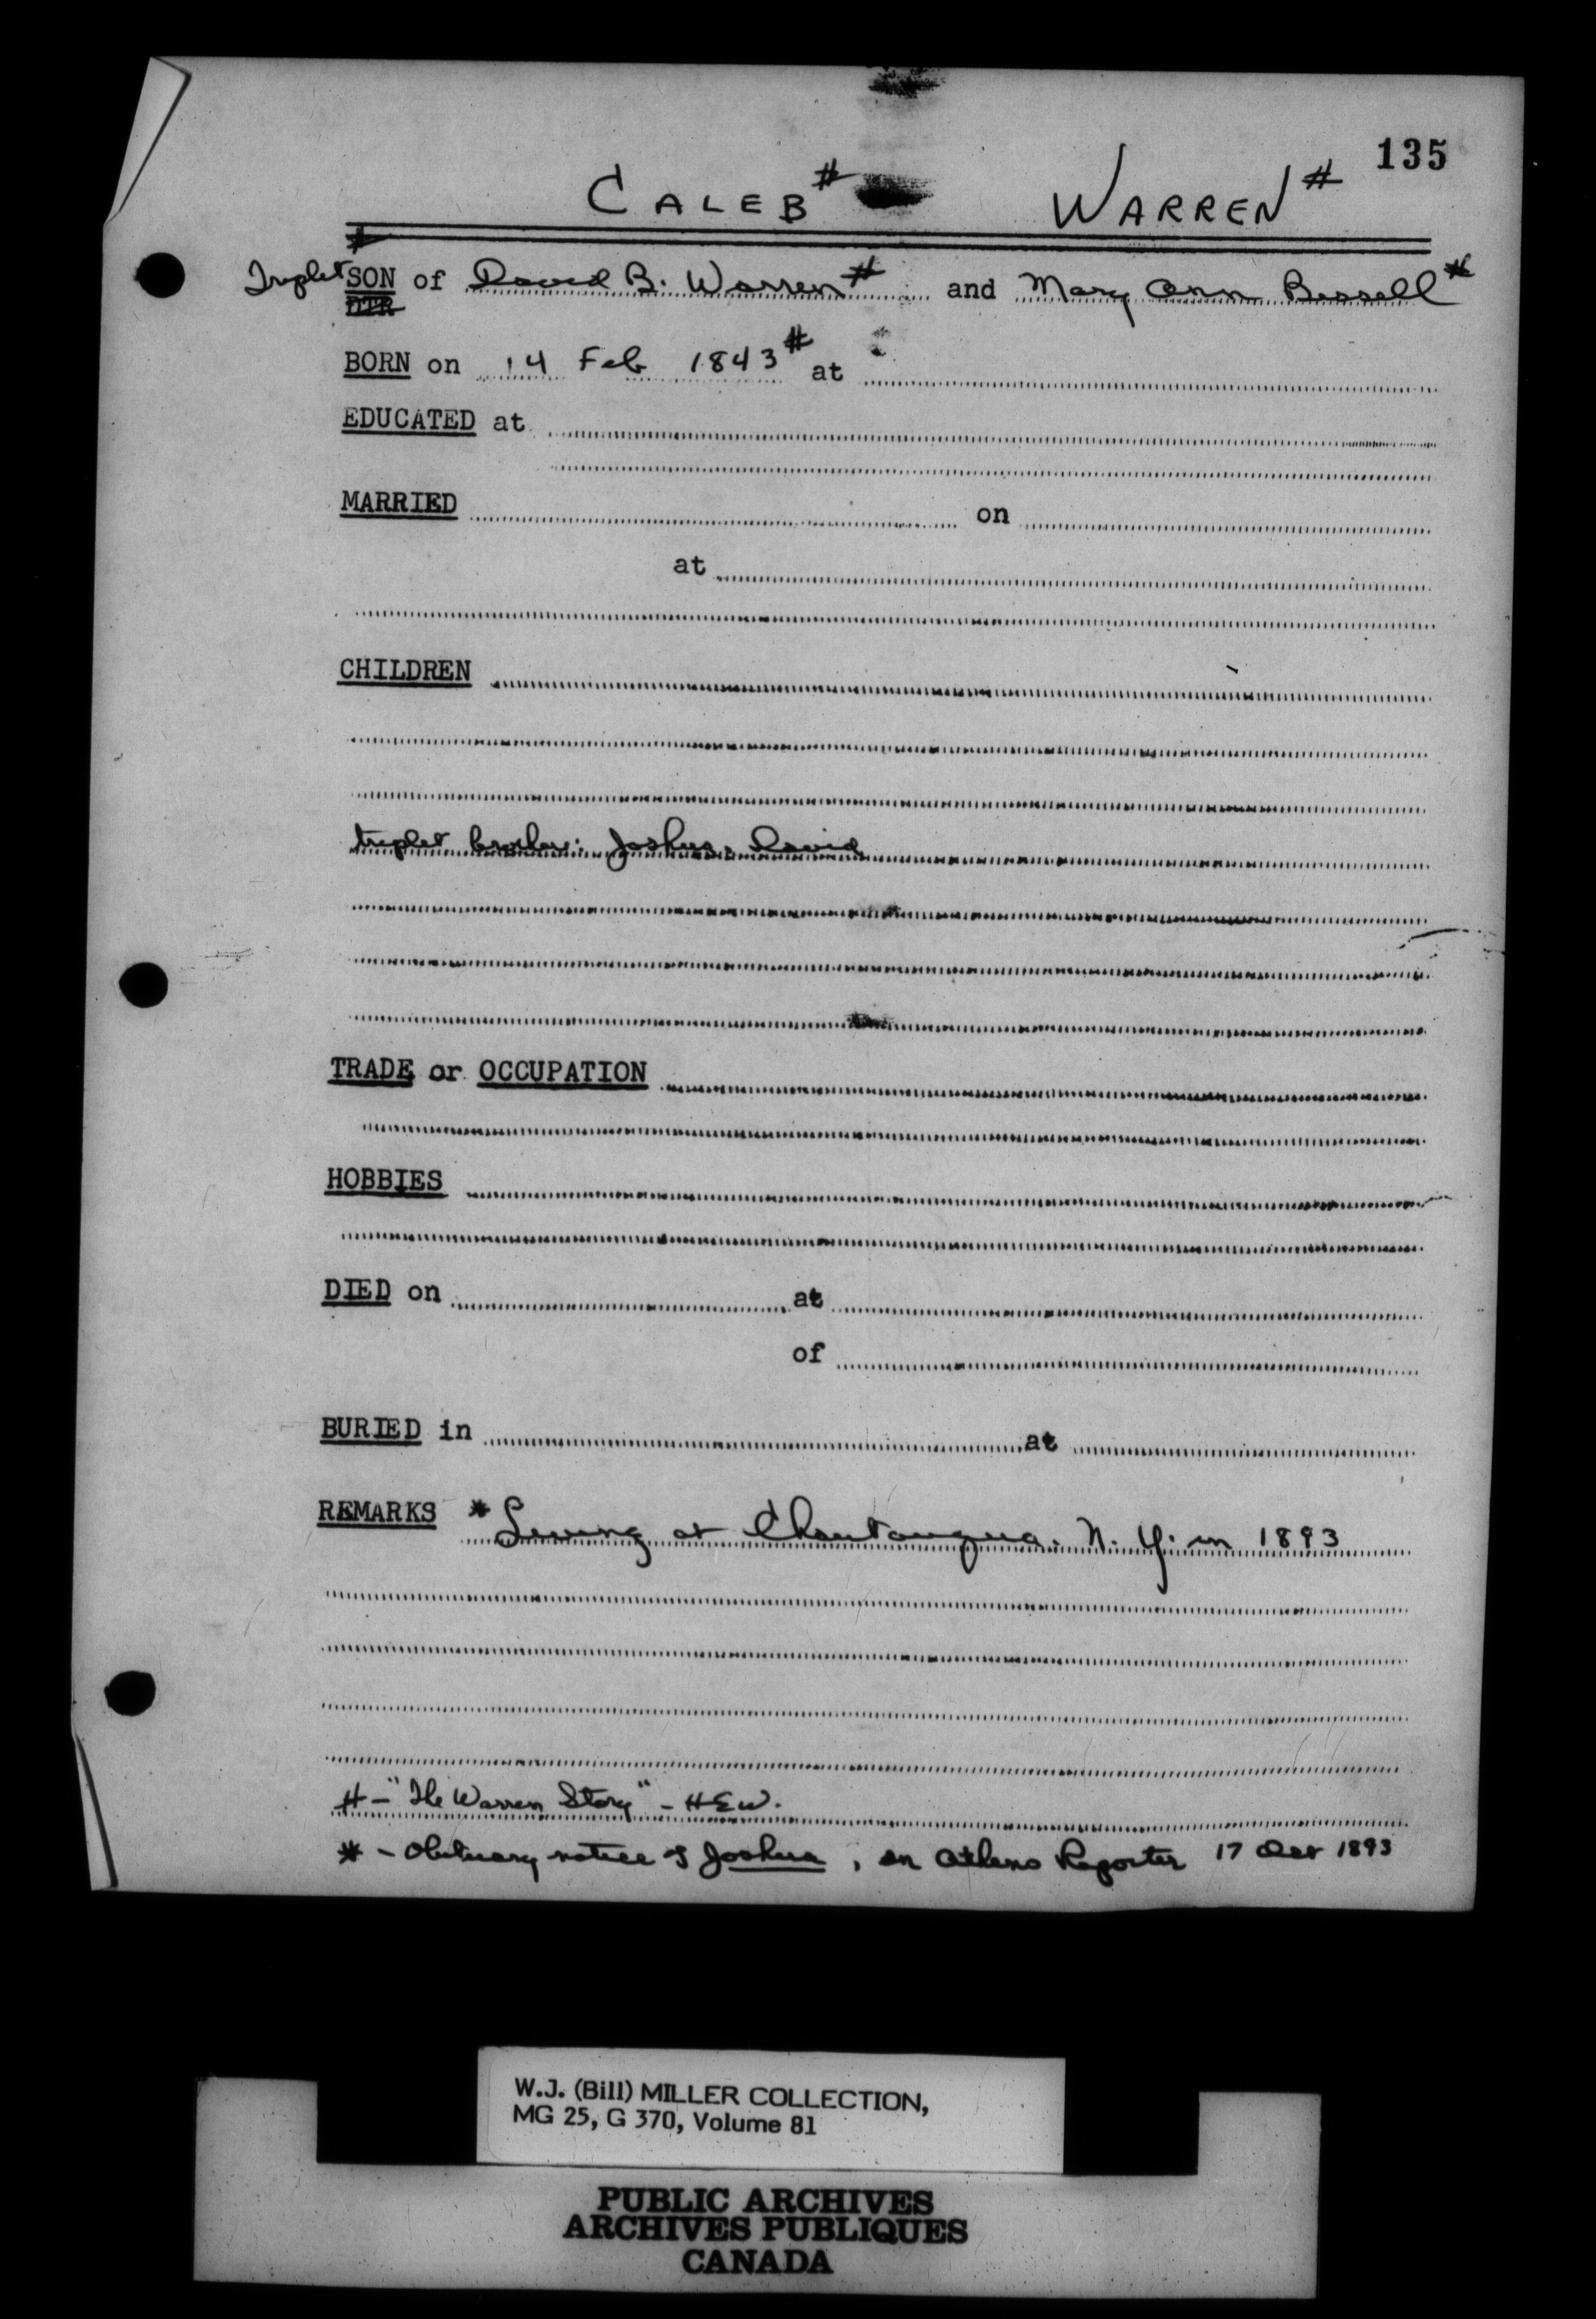 135
CALEB # WARREN #
#
Triplet SON of David B. Warren # and Mary Ann Bissell #
DTR
BORN on 14 Feb 1843 # at
EDUCATED at
MARRIED on
at
CHILDREN
triplet brother: Joshua, David
TRADE or OCCUPATION
HOBBIES
DIED on at
of
BURIED in at
REMARKS * Living at Chautauqua. N.Y. in 1893
# - "The Warren Story" - HEW.
* - Obituary notice of Joshua, in Athens Reporter 17 Oct 1893
W.J. (Bill) MILLER COLLECTION,
MG 25, G 370, Volume 81
PUBLIC ARCHIVES
ARCHIVES PUBLIQUES
CANADA